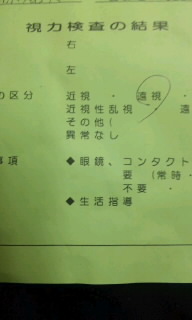 視力検査の結果
右
左
の区分 近視・遠視・
近視性乱視・遠
その他(
異常なし
事項 ◆眼鏡、コンタクト
要(常時・
不要・
◆生活指導